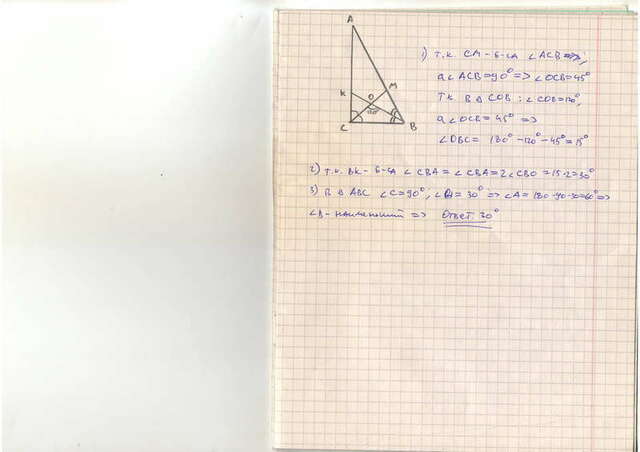 A
K
M
O
120°
C
B
1) т.к. CM - б-са ∠ACB =>
а ∠ACB=90° => ∠OCB=45°
Т.К В Δ COB: ∠COB=120°,
а ∠OCB = 45° =>
∠OBC= 180°-120°-45°=15°
2) т.к. BK - б-са ∠CBA = ∠CBA=2∠CBO =15·2=30°
3) В Δ ABC ∠C=90°, ∠B= 30° => ∠A= 180-90-30=60° =>
∠B- наименьший => Ответ: 30°